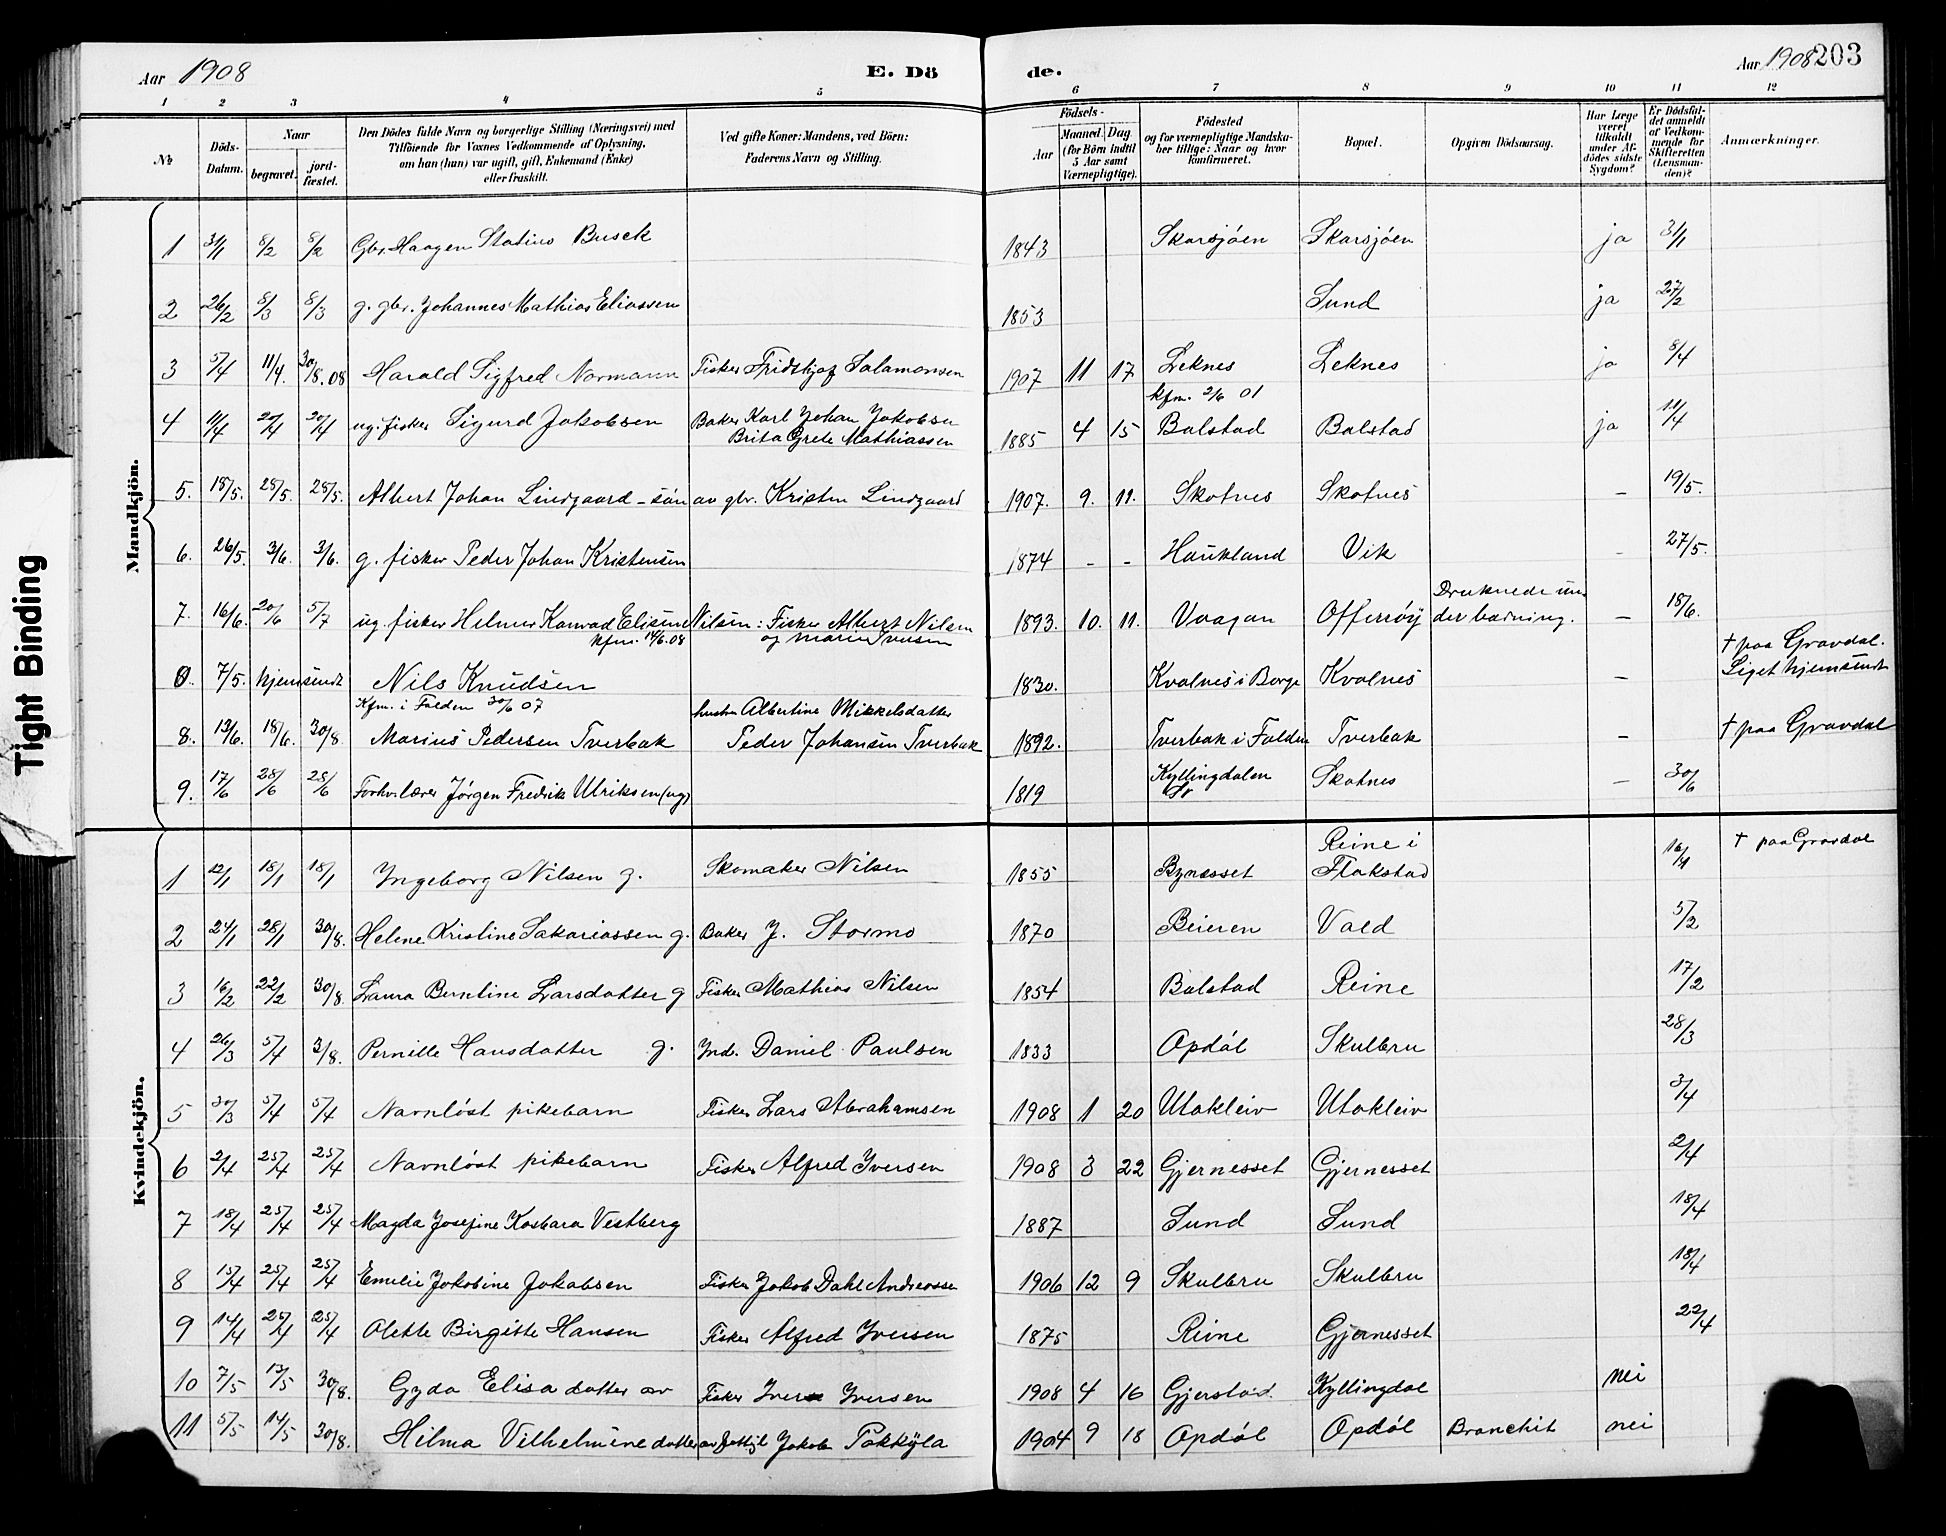 Aar 1908 E. Dö de. Aar 1908 203
1 2 3 4 5 6 7 8 9 10 11 12
№ Döds-Datum. Naar begravet. jordfæstet. Den Dödes fulde Navn og borgerlige Stilling (Næringsvei) med Tilföiende for Voxnes Vedkommende af Oplysning, om han (hun) var ugift, gift, Enkemand (Enke) eller fraskilt. Ved gifte Koner: Mandens, ved Börn: Faderens Navn og Stilling. Födsels- Aar Maaned. Dag (for Börn indtil 5 Aar samt Værnepligtige). Födested og for værnepligtige Mandskaber tillige: Naar og hvor konfirmeret. Bopæl. Opgiven Dödsaarsag. Har Læge været tilkaldt under Afdödes sidste Sygdom? Er Dödsfaldet anmeldt af Vedkommende for Skifteretten (Lensmanden)? Anmærkninger.
Tight Binding
Mandkjön.
1 3/1 8/2 8/2 Gbr. Haagen Statius Busck 1843 Skarsjøen Skarsjøen ja 3/1
2 26/2 8/3 8/3 g. gbr. Johannes Mathias Eliassen 1853 Sund ja 27/2
3 5/4 11/4. 30/8.08 Harald Sigfred Normann Fisker Fridthjof Salamonsen 1907 11 17 Leknes Leknes ja 8/4
kfm. 2/6 01
4 11/4 20/4 20/4 ug. fisker Sigurd Jakobsen Baker Karl Johan Jakobsen 1885 4 15 Balstad Balstad ja 11/4
Brita Grete Mathiassen
5. 18/5. 28/5. 28/5. Albert Johan Lindgaard - sön av gbr. Kristen Lindgaard 1907. 9. 11. Skotnes Skotnes - 19/5.
6. 26/5. 3/6. 3/6. g. fisker Peder Johan Kristensen 1874 - - Haukland Vik - 27/5.
7. 16/6. 20/6 5/7 ug. fisker Helmer Konrad Eliseus Nilsen: Fisker Albert Nilsen 1893. 10. 11. Vaagan Offersøy Druknede under badning. - 18/6.
kfm. 14/6.08 og Marie Iversen
0. 7/5. hjemsendt Nils Knudsen 1830. Kvalnes i Borge Kvalnes - † paa Gravdal. Liget hjemsendt
Kfm. i Folden 30/6 07 hustru Albertine Mikkelsdatter
8. 13/6. 18/6. 30/8 Marius Pedersen Tverbak Peder Johansen Tverbak 1892. Tverbak i Folden Tverbak - † paa Gravdal
9. 17/6 28/6 28/6 Forhv. lærer Jørgen Fredrik Ulriksen (ug) 1819 Kyllingdalen Skotnes - 30/6
Kvindekjön.
1 12/1 18/1 18/1 Ingeborg Nilsen g. Skomaker Nilsen 1855 Bynesset Reine i Flakstad 16/1 † paa Gravdal
2 24/1 28/1 30/8. Helene Kristine Sakariassen g. Baker J. Stormo 1870 Beieren Vold 5/2
3 16/2 22/2 30/8. Laura Berntine Larsdatter g Fisker Mathias Nilsen 1854 Balstad Reine 17/2
4 26/3 5/4 3/8. Pernille Hansdatter g. Ind. Daniel Paulsen 1833 Opdøl Skulbru 28/3
5 30/3 5/4 5/4 Navnløst pikebarn Fisker Lars Abrahamsen 1908 1 20 Utakleiv Utakleiv 3/4
6 2/4 25/4 25/4 Navnløst pikebarn Fisker Alfred Iversen 1908 3 22 Gjernesset Gjernesset 2/4
7 18/4 25/4 25/4 Magda Josefine Kasbara Vestberg 1887 Sund Sund 18/4
8 15/4 25/4 25/4 Emelie Jakobine Jakobsen Fisker Jakob Dahl Andreasse 1906 12 9 Skulbru Skulbru 18/4
9 14/4 25/4 25/4 Olette Birgitte Hansen Fisker Alfred Iversen 1875 Reine Gjernesset 22/4
10 7/5 13/5 30/8. Gyda Elisa datter av Fisker Iver Iversen 1908 4 16 Gjerstad Kyllingdal nei
11 5/5 14/5 30/8. Hilma Vilhelmine datter av Jakob Pokkyla 1904 9 18 Opdøl Opdøl Bronchit nei